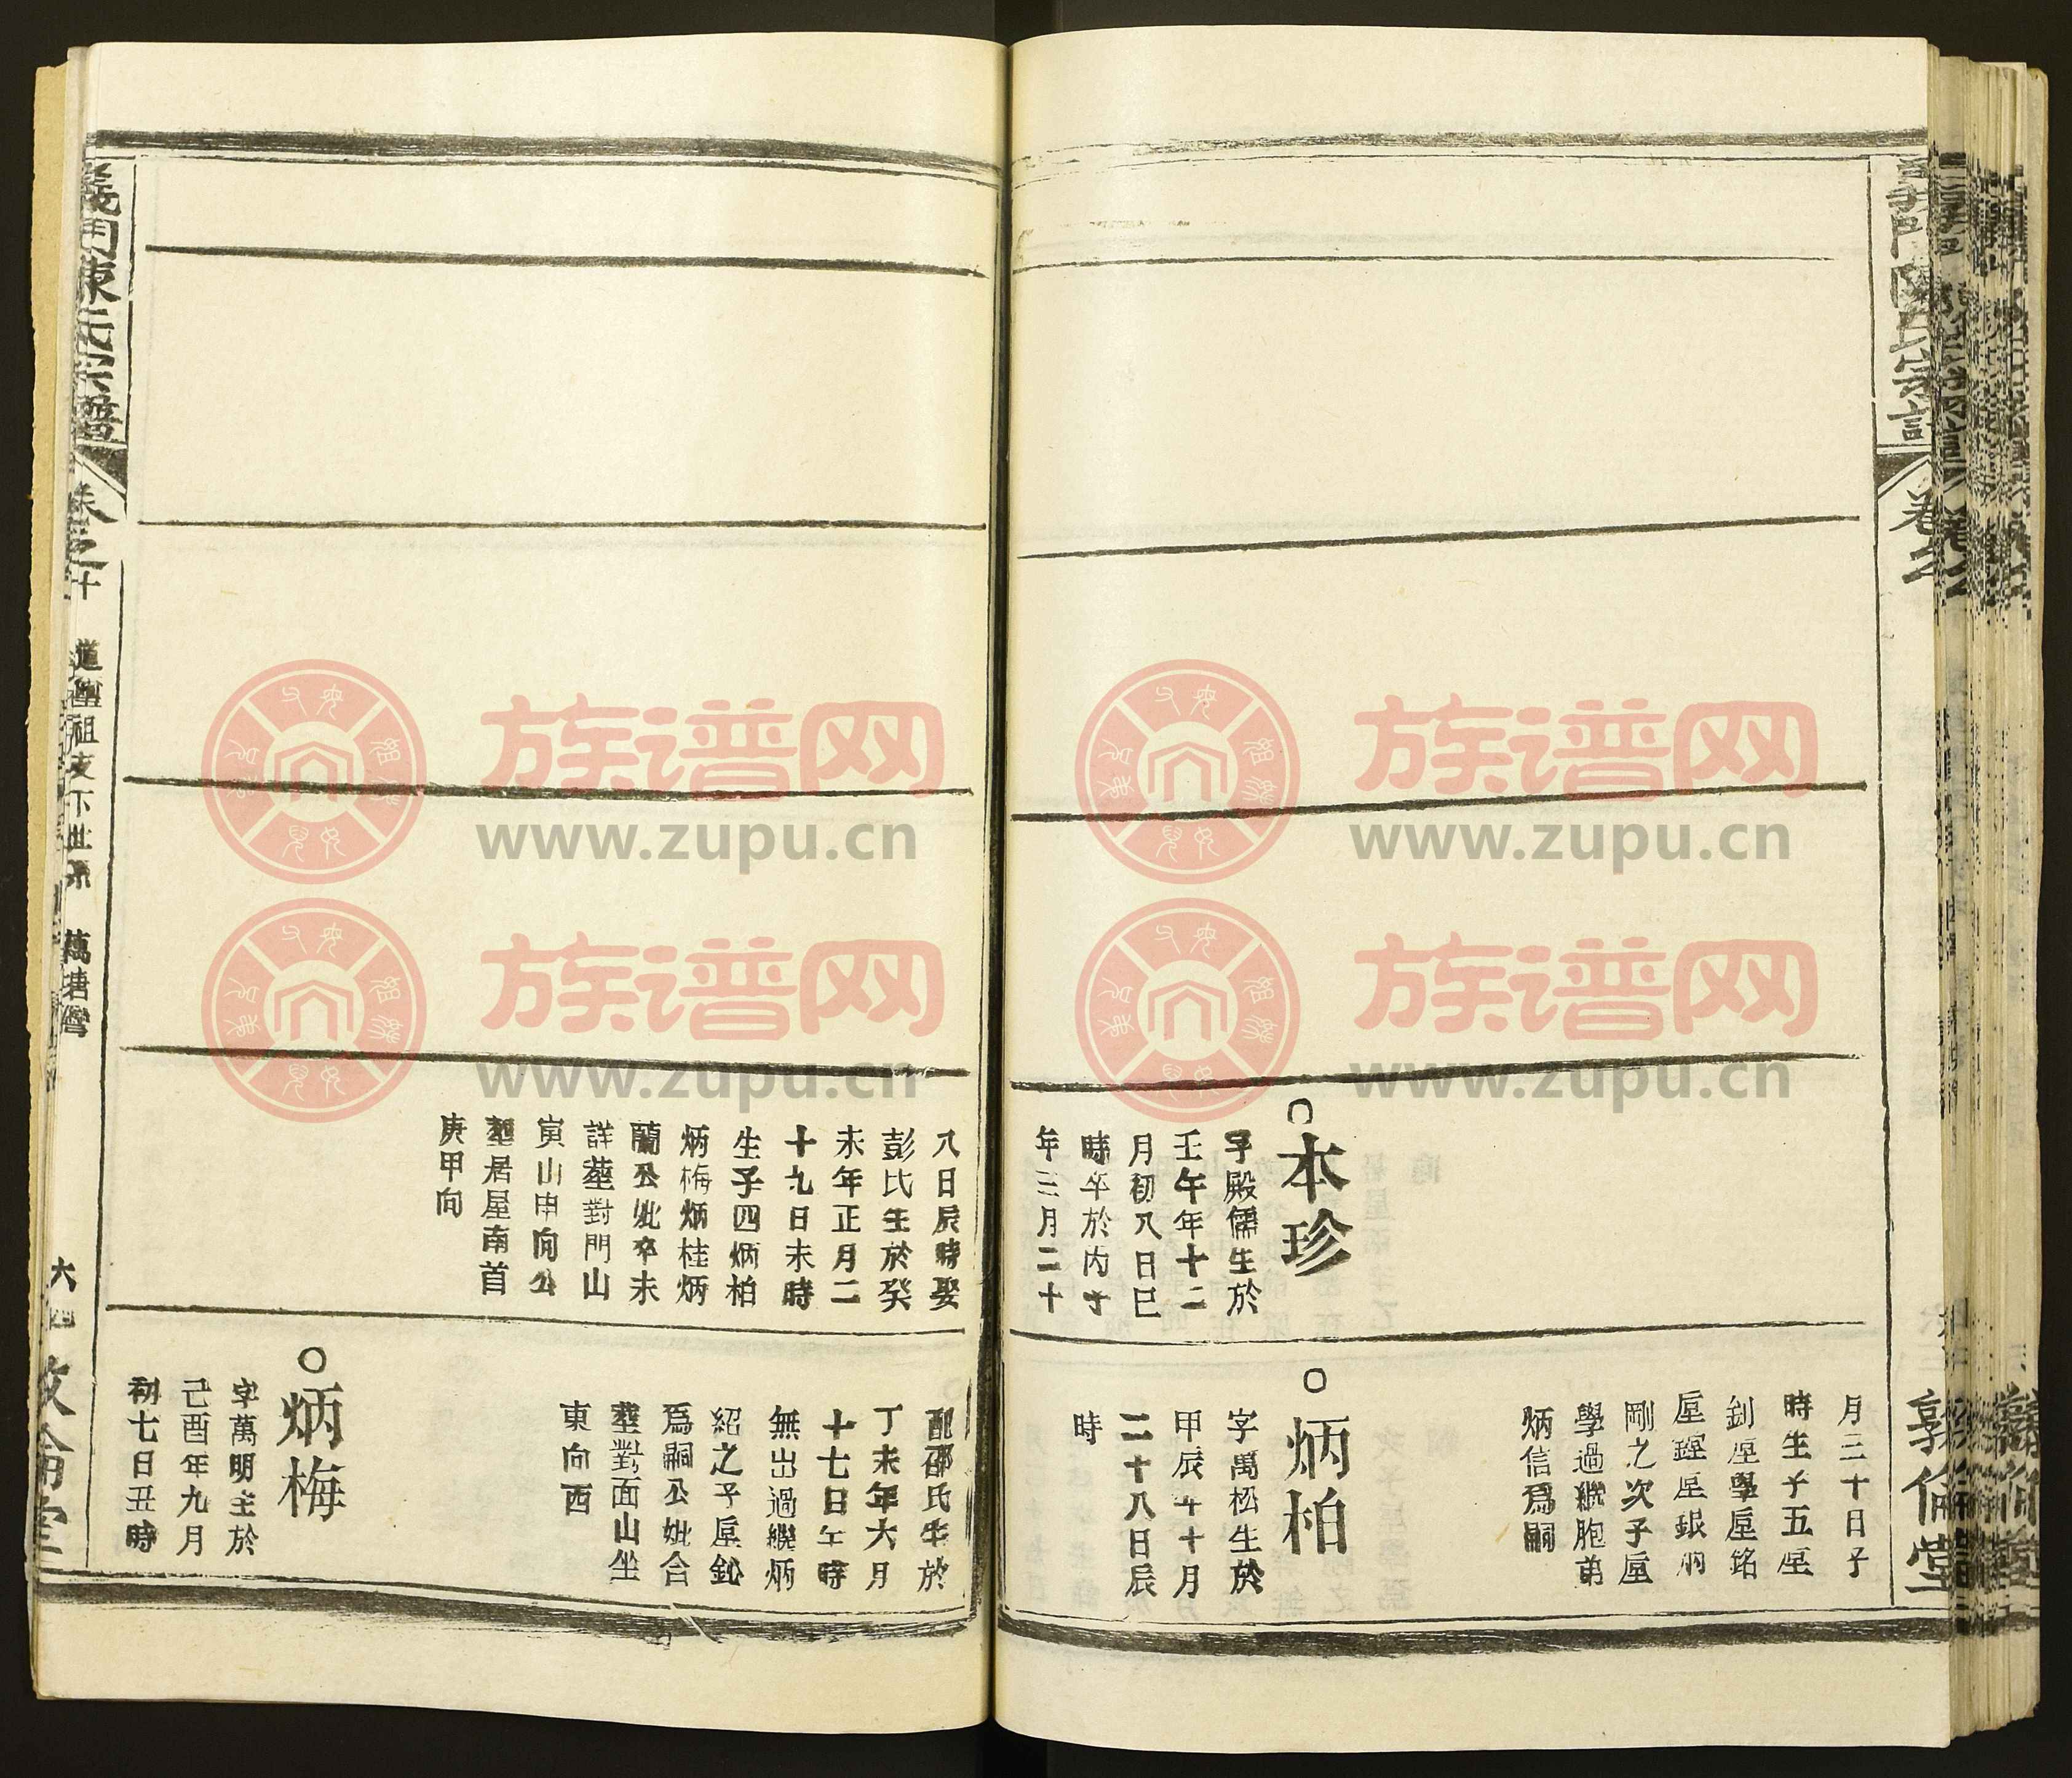 義門陳氏宗譜
卷之
敦倫堂
本珍
字殿儒生於
壬午年十二
月初八日巳
時卒於丙子
年三月二十
月二十日子
時生子五垕
釗垕學垕銘
垕鏗垕銀炳
剛之次子垕
學過繼胞弟
炳信爲嗣
炳柏
字萬松生於
甲辰年十月
二十八日辰
時
八日辰時娶
彭氏生於癸
未年正月二
十九日未時
生子四炳柏
炳梅炳桂炳
蘭公妣卒未
詳塟對門山
寅山申向公
塟居屋南首
庚甲向
配邵氏生於
丁未年六月
十七日午時
無出過繼炳
紹之子垕鈆
爲嗣公妣合
塟對面山坐
東向西
炳梅
字萬明生於
己酉年九月
初七日丑時
義門陳氏宗譜
卷之十
道 祖支下世系
萬塘灣
六四
敦倫堂
族谱网
www.zupu.cn
族谱网
www.zupu.cn
族谱网
www.zupu.cn
族谱网
www.zupu.cn